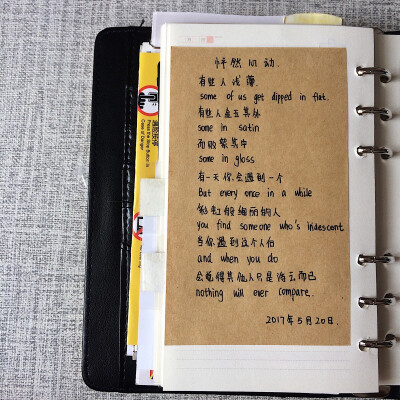 怦然心动.
有些人浅薄
some of us get dipped in flat.
有些人金玉其外
some in satin
而败絮其中
some in gloss
有一天你会遇到一个
But every once in a while
彩虹般绚丽的人
you find someone who's iridescent
当你遇到这个人后
and when you do
会觉得其他人只是浮云而已
nothing will ever compare.
2017年5月20日.
Press the Stop Button in
Case of Danger